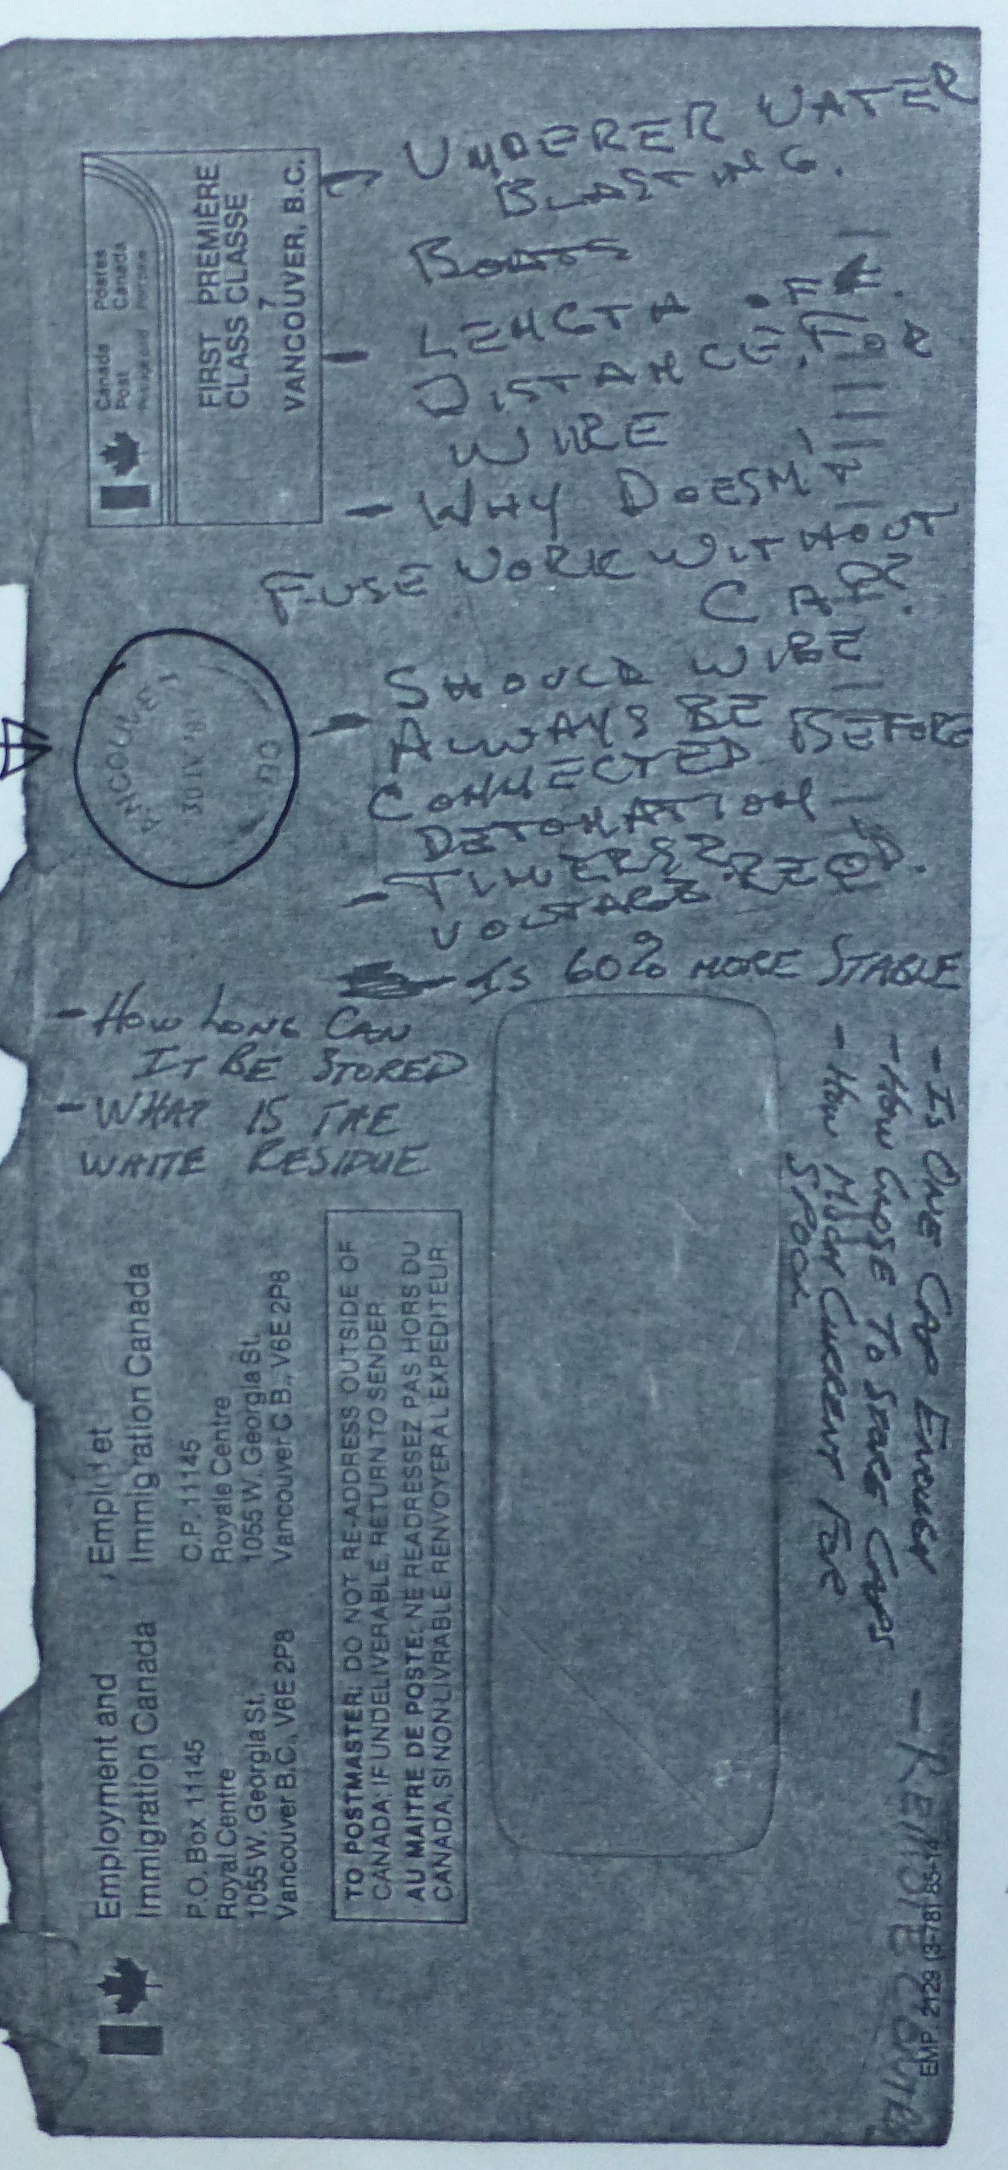 - UNDERER WATER
BLASTING.
BOATS
- LENGTH OF
DISTANCE. FOR
WIRE
- WHY DOESN'T
FUSE WORK WITHOUT
CAP?
- SHOULD WIRE
ALWAYS BE
CONNECTED BEFORE
DETONATION
- TIMERS?
VOLTAGE REQ.
- IS 60% MORE STABLE
- HOW LONG CAN
IT BE STORED
- WHAT IS THE
WHITE RESIDUE
- IS ONE CAP ENOUGH
- HOW CLOSE TO STORE CAPS
- HOW MUCH CURRENT FOR
SPOOL
- REMOTE CONTR
Canada Postes
Post Canada
FIRST PREMIÈRE
CLASS CLASSE
7
VANCOUVER, B.C.
ANCOUVE
30 IV
Employment and
Immigration Canada
P.O. Box 11145
Royal Centre
1055 W. Georgia St.
Vancouver B.C., V6E 2P8
Emploi et
Immigration Canada
C.P. 11145
Royale Centre
1055 W. Georgia St.
Vancouver C.B., V6E 2P8
TO POSTMASTER: DO NOT RE-ADDRESS OUTSIDE OF
CANADA, IF UNDELIVERABLE, RETURN TO SENDER
AU MAITRE DE POSTE: NE READRESSEZ PAS HORS DU
CANADA, SI NON LIVRABLE, RENVOYER A L'EXPEDITEUR
EMP. 2129 (3-78) 85-14